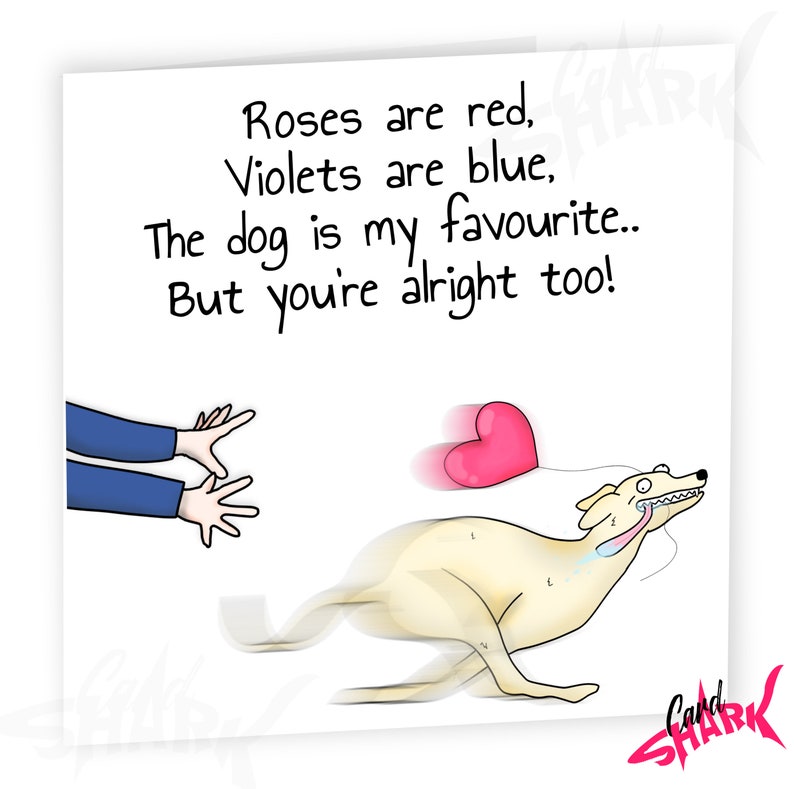 Roses are red,
Violets are blue,
The dog is my favourite..
But you're alright too!
Card
SHARK
Card
SHARK
Card
SHARK